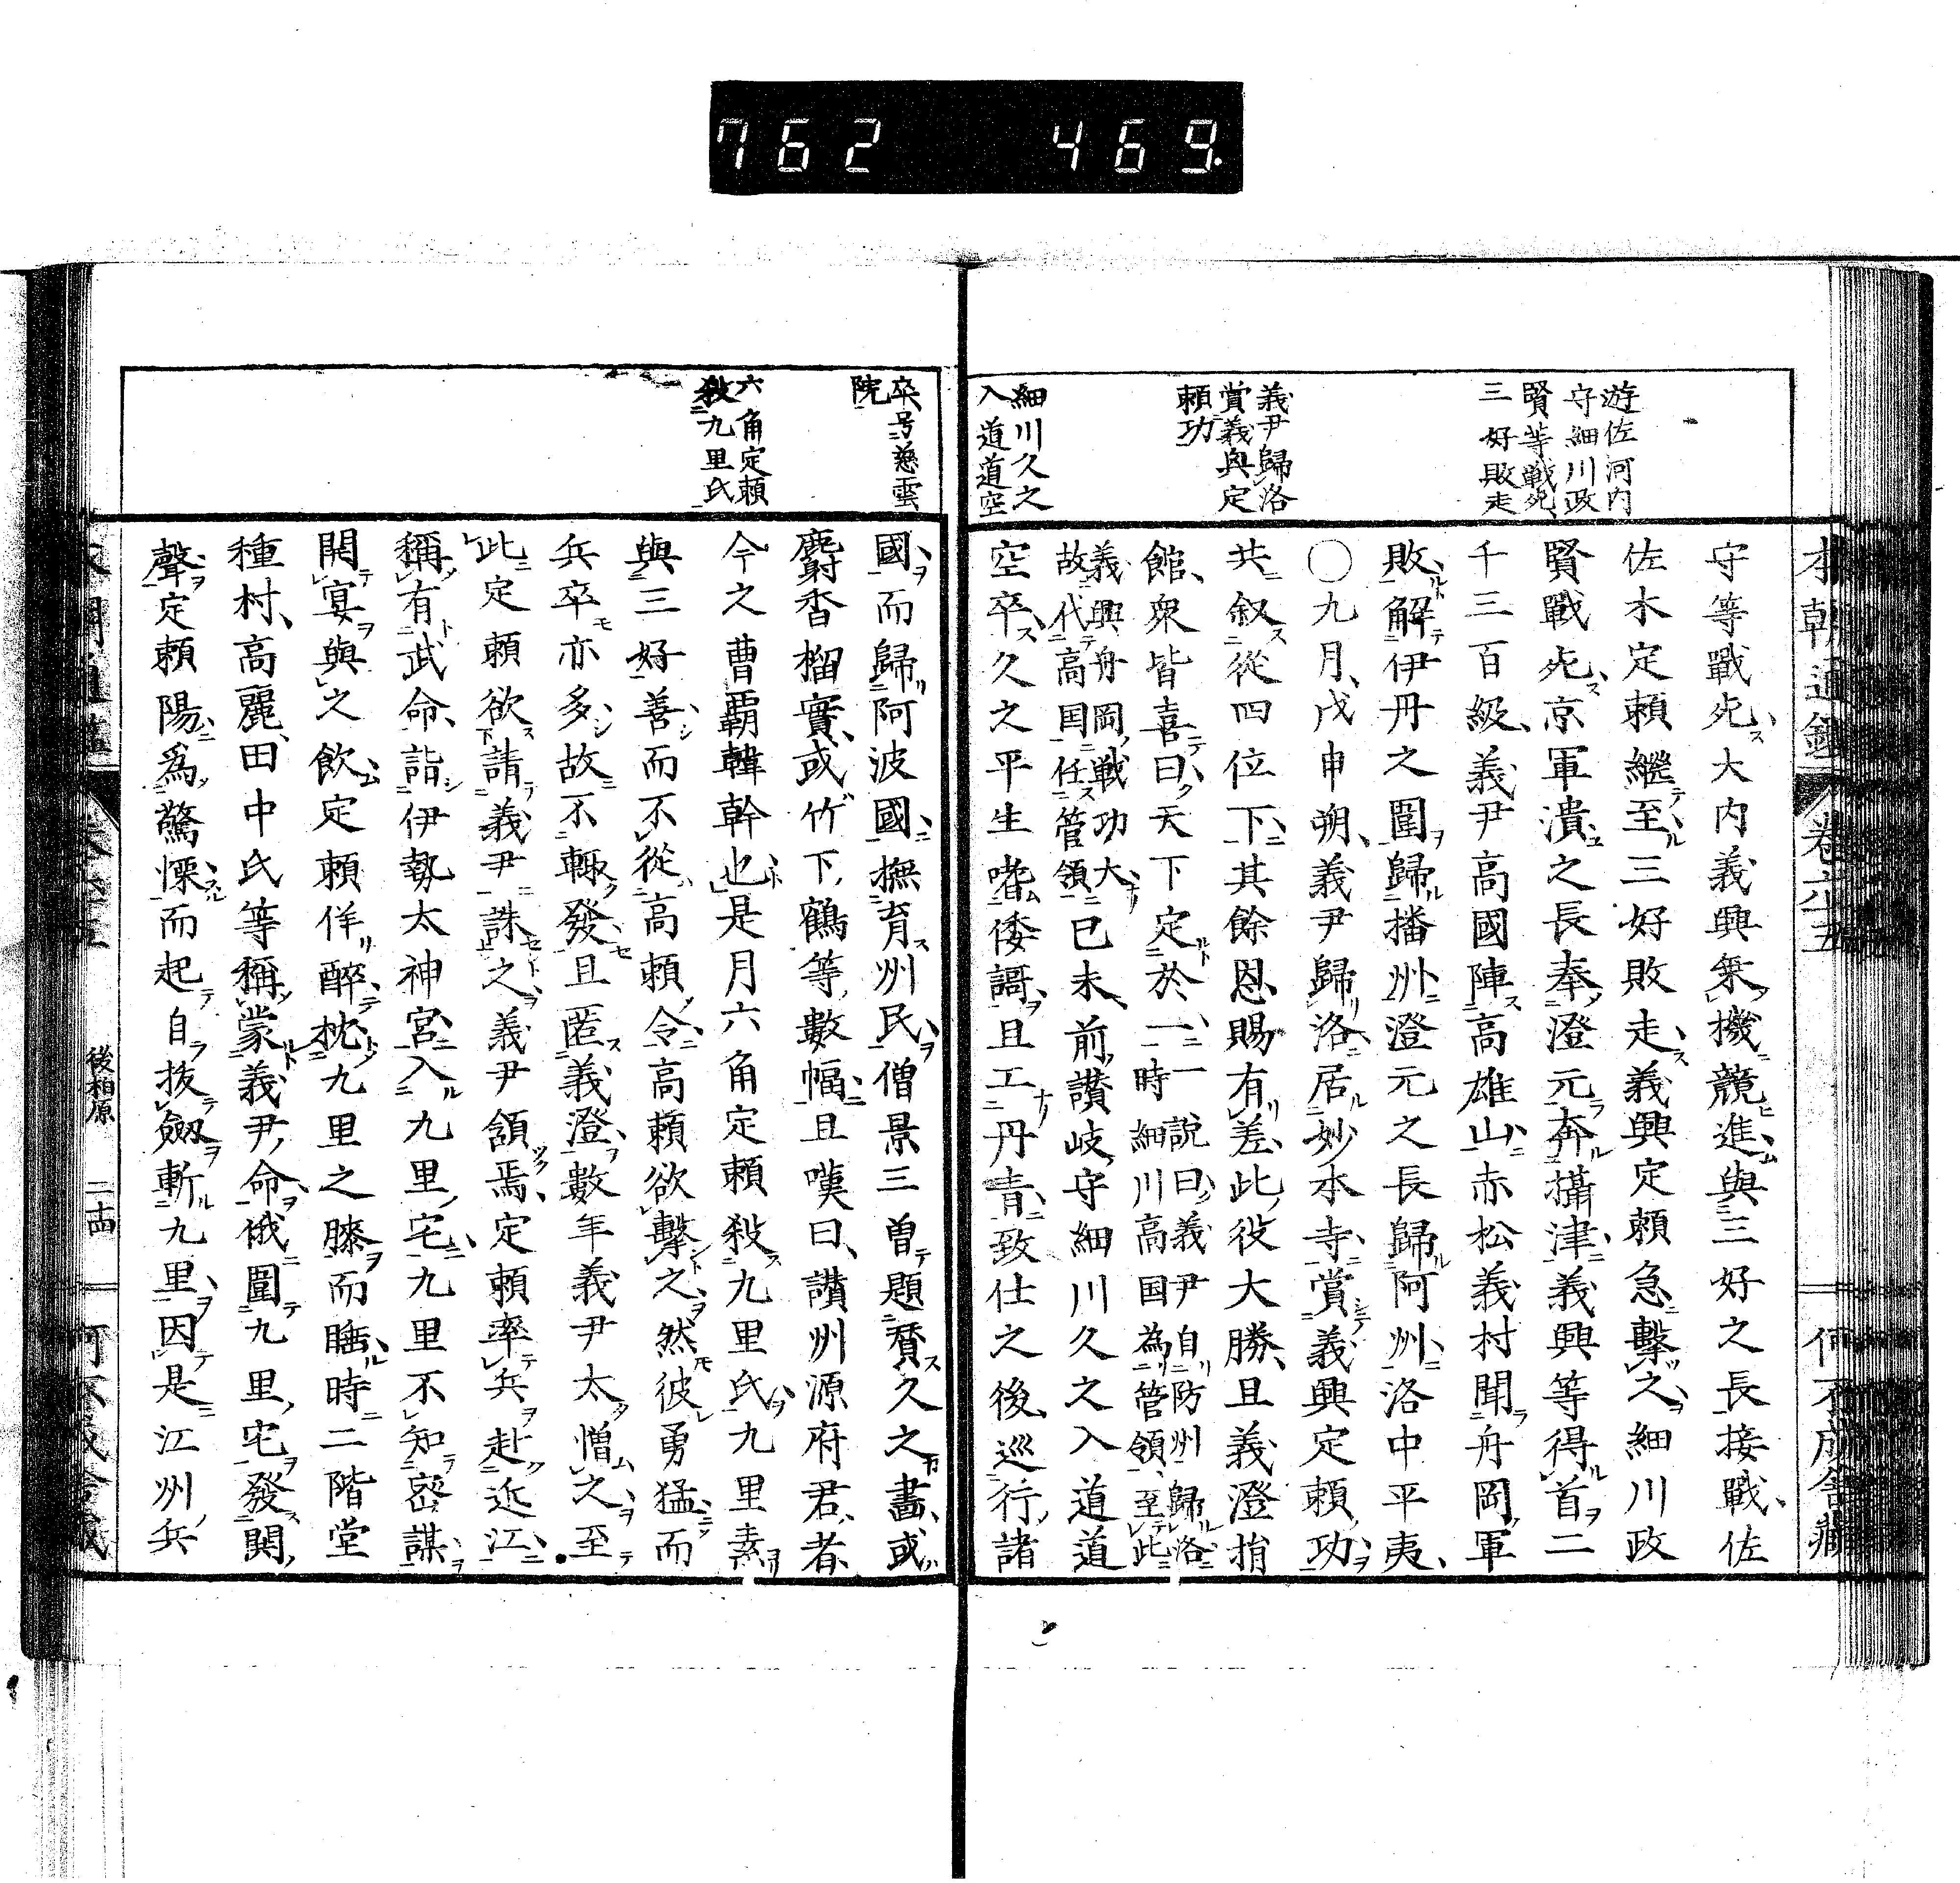 762 469.
本朝通鑑 卷六十五
何不成舍藏
遊佐河内
守細川政
賢等戰死
三好敗走
義尹歸洛
賞義興定
頼功
細川久之
入道道空
守等戰死大内義興乗機競進與三好之長接戰佐
佐木定頼繼至三好敗走義興定頼急擊之細川政
賢戰死京軍潰之長奉澄元奔攝津義興等得首二
千三百級義尹高國陣高雄山赤松義村聞舟岡軍
敗解伊丹之圍歸播州澄元之長歸阿州洛中平夷
○九月戊申朔義尹歸洛居妙本寺賞義興定頼功
共叙從四位下其餘恩賜有差此役大勝且義澄捐
館衆皆喜曰天下定於一時
一説曰義尹自防州歸洛
細川高国為管領至此
義興舟岡戦功大
故代高国任管領
已未前讃岐守細川久之入道道
空卒久之平生嗜倭謌且工丹青致仕之後巡行諸
卒号慈雲
院
六角定頼
殺九里氏
國而歸阿波國撫育州民僧景三曽題賛久之畫或
麝香榴實或竹下鶴等數幅且嘆曰讃州源府君者
今之曹霸韓幹也是月六角定頼殺九里氏九里素
與三好善而不從高頼令高頼欲擊之然彼勇猛而
兵卒亦多故不輙發且匿義澄數年義尹太憎之至
此定頼欲請義尹誅之義尹頷焉定頼率兵赴近江
稱有武命詣伊勢太神宮入九里宅九里不知密謀
開宴與之飲定頼佯醉枕九里之膝而睡時二階堂
種村高麗田中氏等稱蒙義尹命俄圍九里宅發鬨
聲定頼陽爲驚慄而起自抜劔斬九里因是江州兵
後柏原 二十四